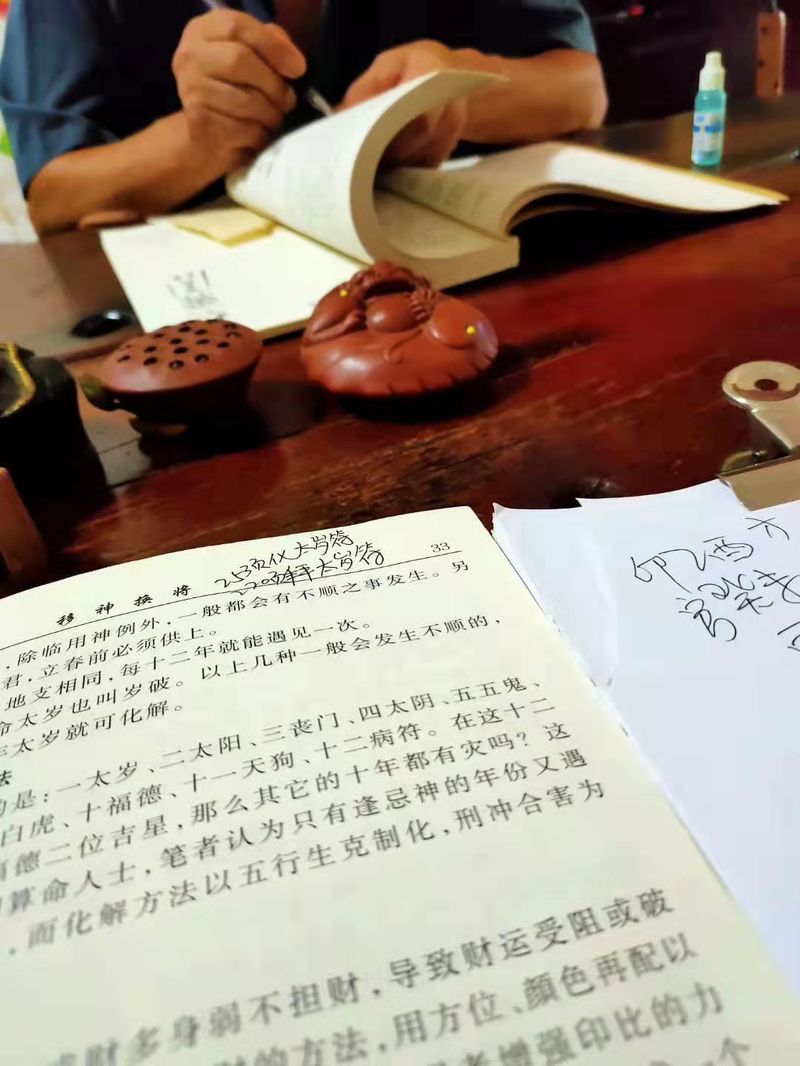 移神换将 33
253页仪太岁符
,除临用神例外,一般都会有不顺之事发生。另
君,立春前必须供上。
地支相同,每十二年就能遇见一次。
命太岁也叫岁破。以上几种一般会发生不顺的,
太岁就可化解。
法
的是:一太岁、二太阳、三丧门、四太阴、五五鬼、
白虎、十福德、十一天狗、十二病符。在这十二
福德二位吉星,那么其它的十年都有灾吗?这
算命人士,笔者认为只有逢忌神的年份又遇
,而化解方法以五行生克制化,刑冲合害为
财多身弱不担财,导致财运受阻或破
的方法,用方位、颜色再配以
者增强印比的力
一个